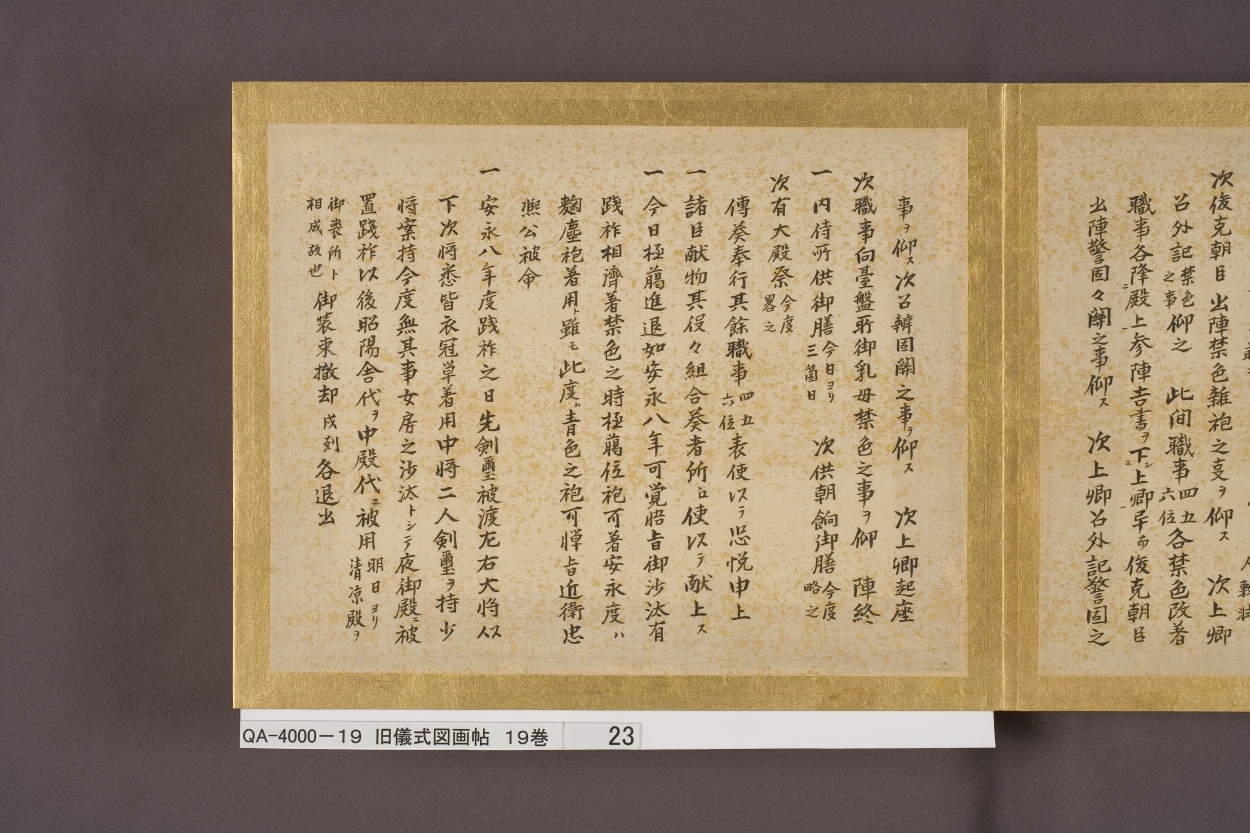 次俊克朝臣 出陣禁色雑袍之支ヲ仰ス 次上卿
召外記禁色之事仰之 此间職事四五六位各禁色改着
職事各降殿上参陣吉書ヲ下上卿 俊克朝臣
出陣警固々關之事仰ス 次上卿召外記警固之
事ヲ仰ス次召辨固關之事ヲ仰ス 次上卿起座
次職事向臺盤所御乳母禁色之事ヲ仰 陣終
一 内侍所供御膳今日ヨリ三箇日 次供朝餉御膳今度略之
次有大殿祭今度畧之
傳奏奉行其餘職事四五六位表使以テ恐悦申上
一 諸臣献物其役々組合奏者所ニ使以テ献上ス
一 今日極﨟進退如安永八年可覚悟旨御沙汰有
践祚相濟着禁色之時極﨟位袍可着安永度ハ
麹塵袍着用ト雖モ此度ハ青色之袍可憚旨近衛忠
凞公被命
一 安永八年度践祚之日先剣璽被渡左右大将以
下次将悉皆衣冠単着用中将二人剣璽ヲ持少
将案持今度無其事女房之沙汰トシテ夜御殿ニ被
置践祚以後昭陽舎代ヲ中殿代ニ被用明日ヨリ清凉殿ヲ
御喪所ト相成故也 御装束撤却 戌刻各退出
QA-4000-19 旧儀式図画帖 19巻 23